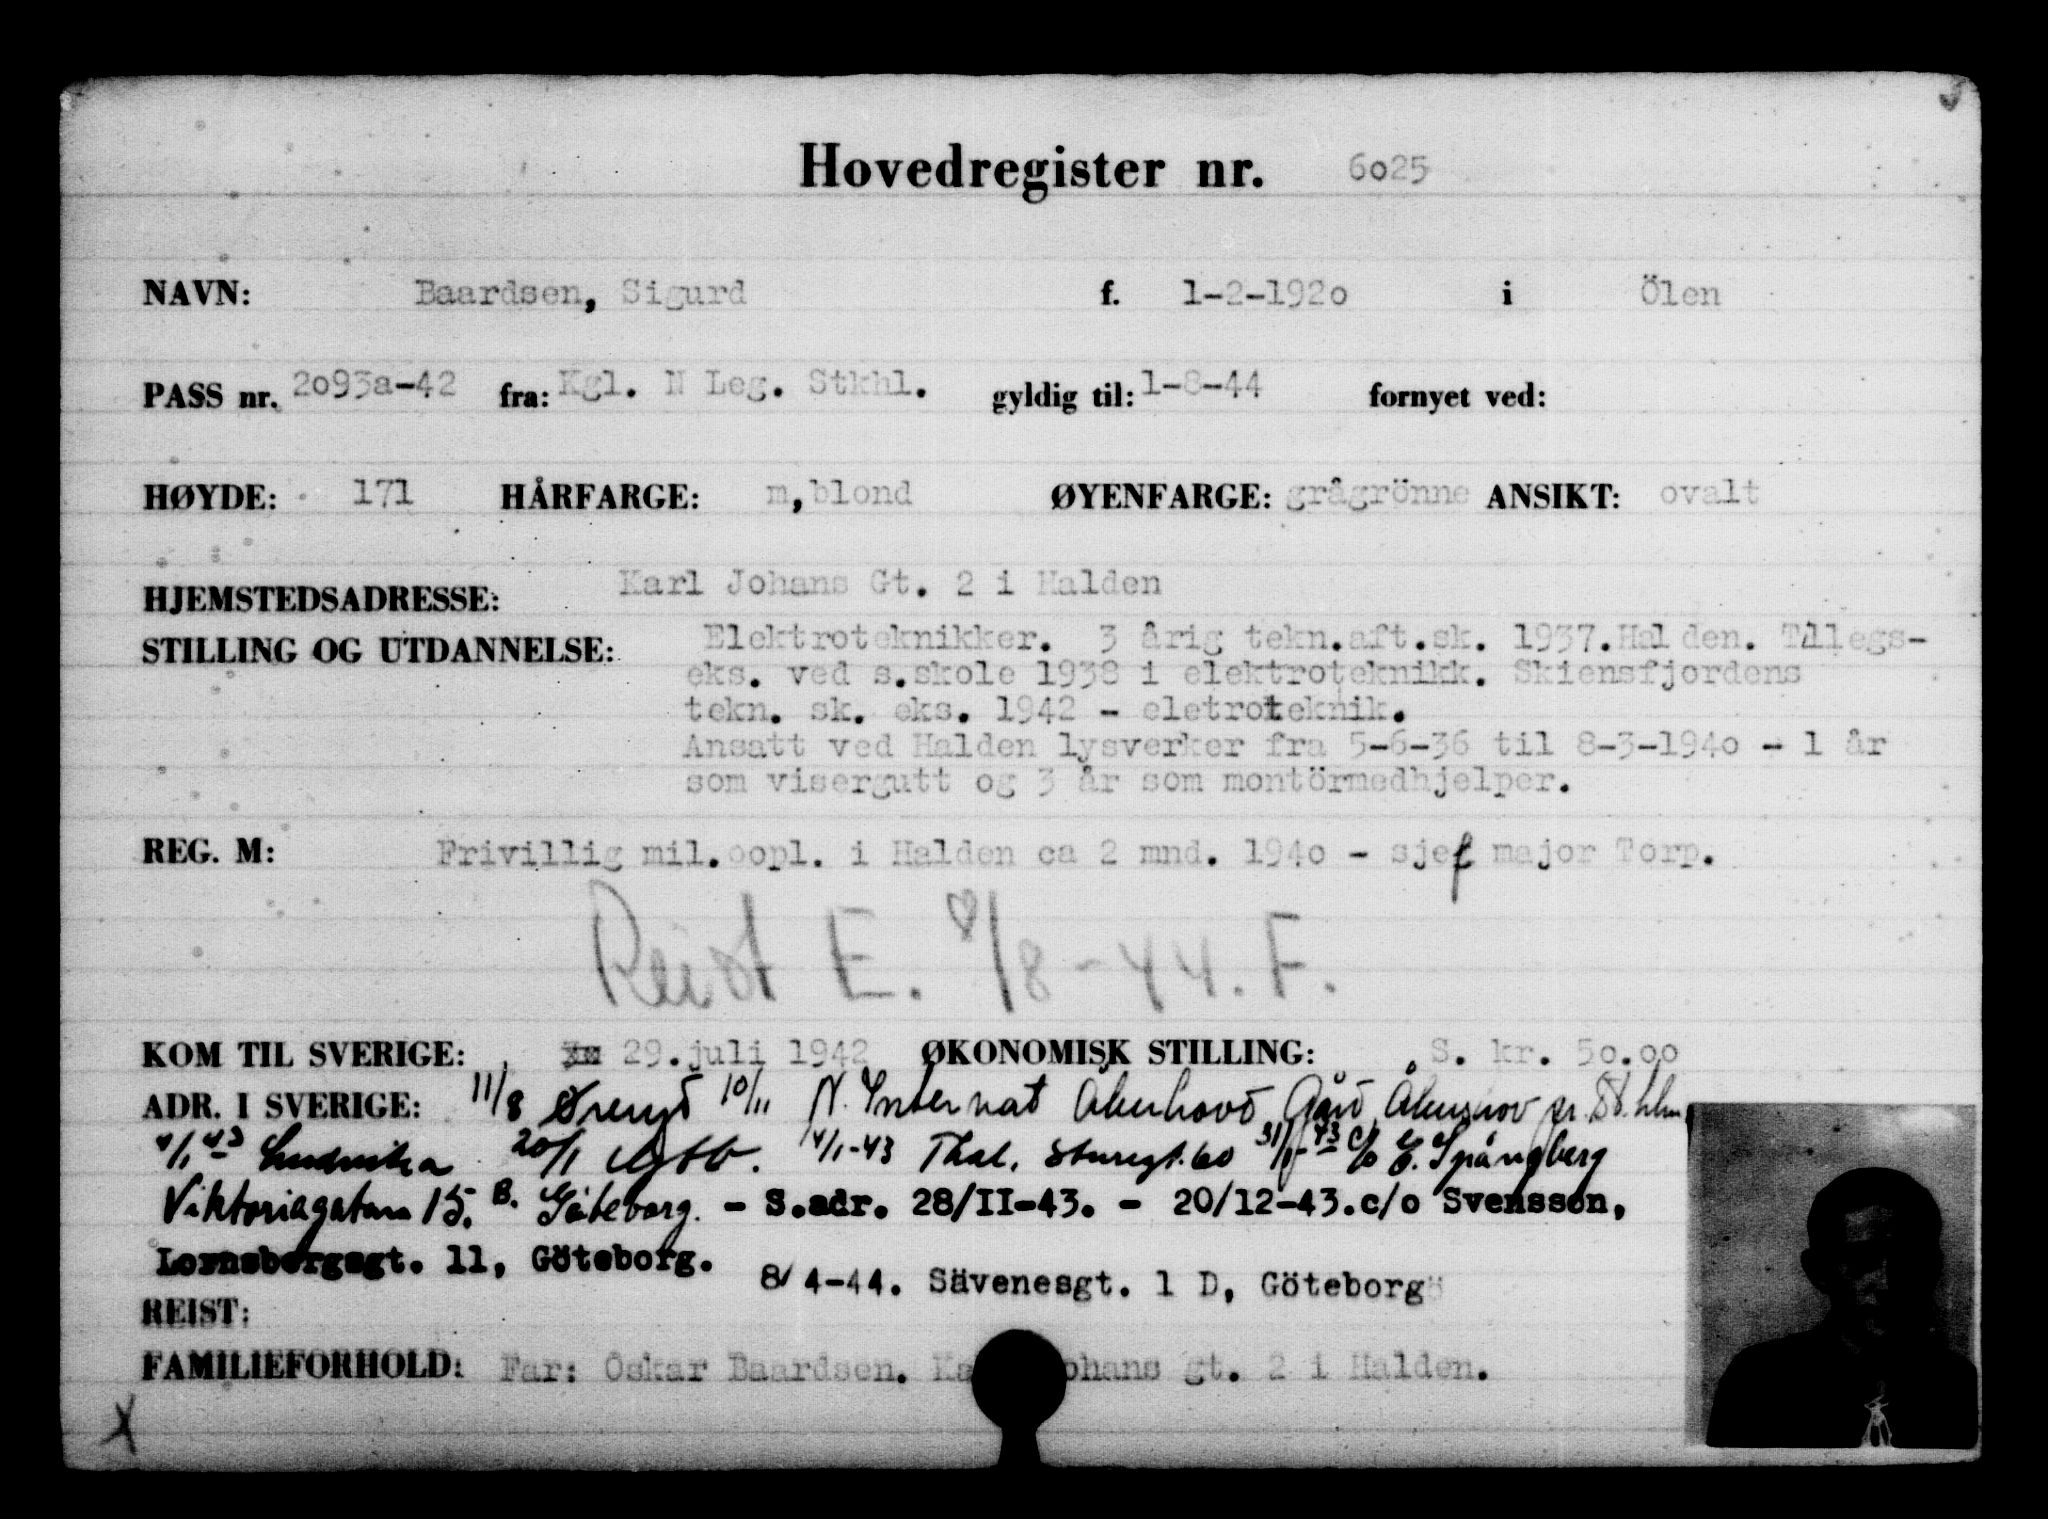 Hovedregister nr. 6025
NAVN: Baardsen, Sigurd f. 1-2-192o i Ölen
PASS nr. 2o93a-42 fra: Kgl. N Leg. Stkhl. gyldig til: 1-8-44 fornyet ved:
HØYDE: 171 HÅRFARGE: m,blond ØYENFARGE: grågrönne ANSIKT: ovalt
HJEMSTEDSADRESSE: Karl Johans Gt. 2 i Halden
STILLING OG UTDANNELSE: Elektroteknikker. 3 årig tekn.aft.sk. 1937.Halden. Tllegs-
eks. ved s.skole 1938 i elektroteknikk. Skiensfjordens
tekn. sk. eks. 1942 - eletroteknik.
Ansatt ved Halden lysverker fra 5-6-36 til 8-3-194o - 1 år
som visergutt og 3 år som montörmedhjelper.
REG. M: Frivillig mil.oopl. i Halden ca 2 mnd. 194o - sjef major Torp.
Reist E. /8-44. F.
KOM TIL SVERIGE: 29.juli 1942 ØKONOMISK STILLING: S. kr. 5o.oo
ADR. I SVERIGE: 11/8 Øreryd 10/11 N. Internat Åkeshovs Gård, Åkeshov pr. St.hlm
4/1-43 Ludvika 20/1 Gtb. 14/1-43 Thol. Sturegt. 60 31/1-43 c/o E. Spångberg
Viktoriagatan 15. B. Göteborg. - S.adr. 28/II-43. - 20/12-43.c/o Svensson,
Lornsbergsgt. 11, Göteborg. 8/4-44. Sävenesgt. 1 D, Göteborg
REIST:
FAMILIEFORHOLD: Far: Oskar Baardsen. Ka ohans gt. 2 i Halden.
X